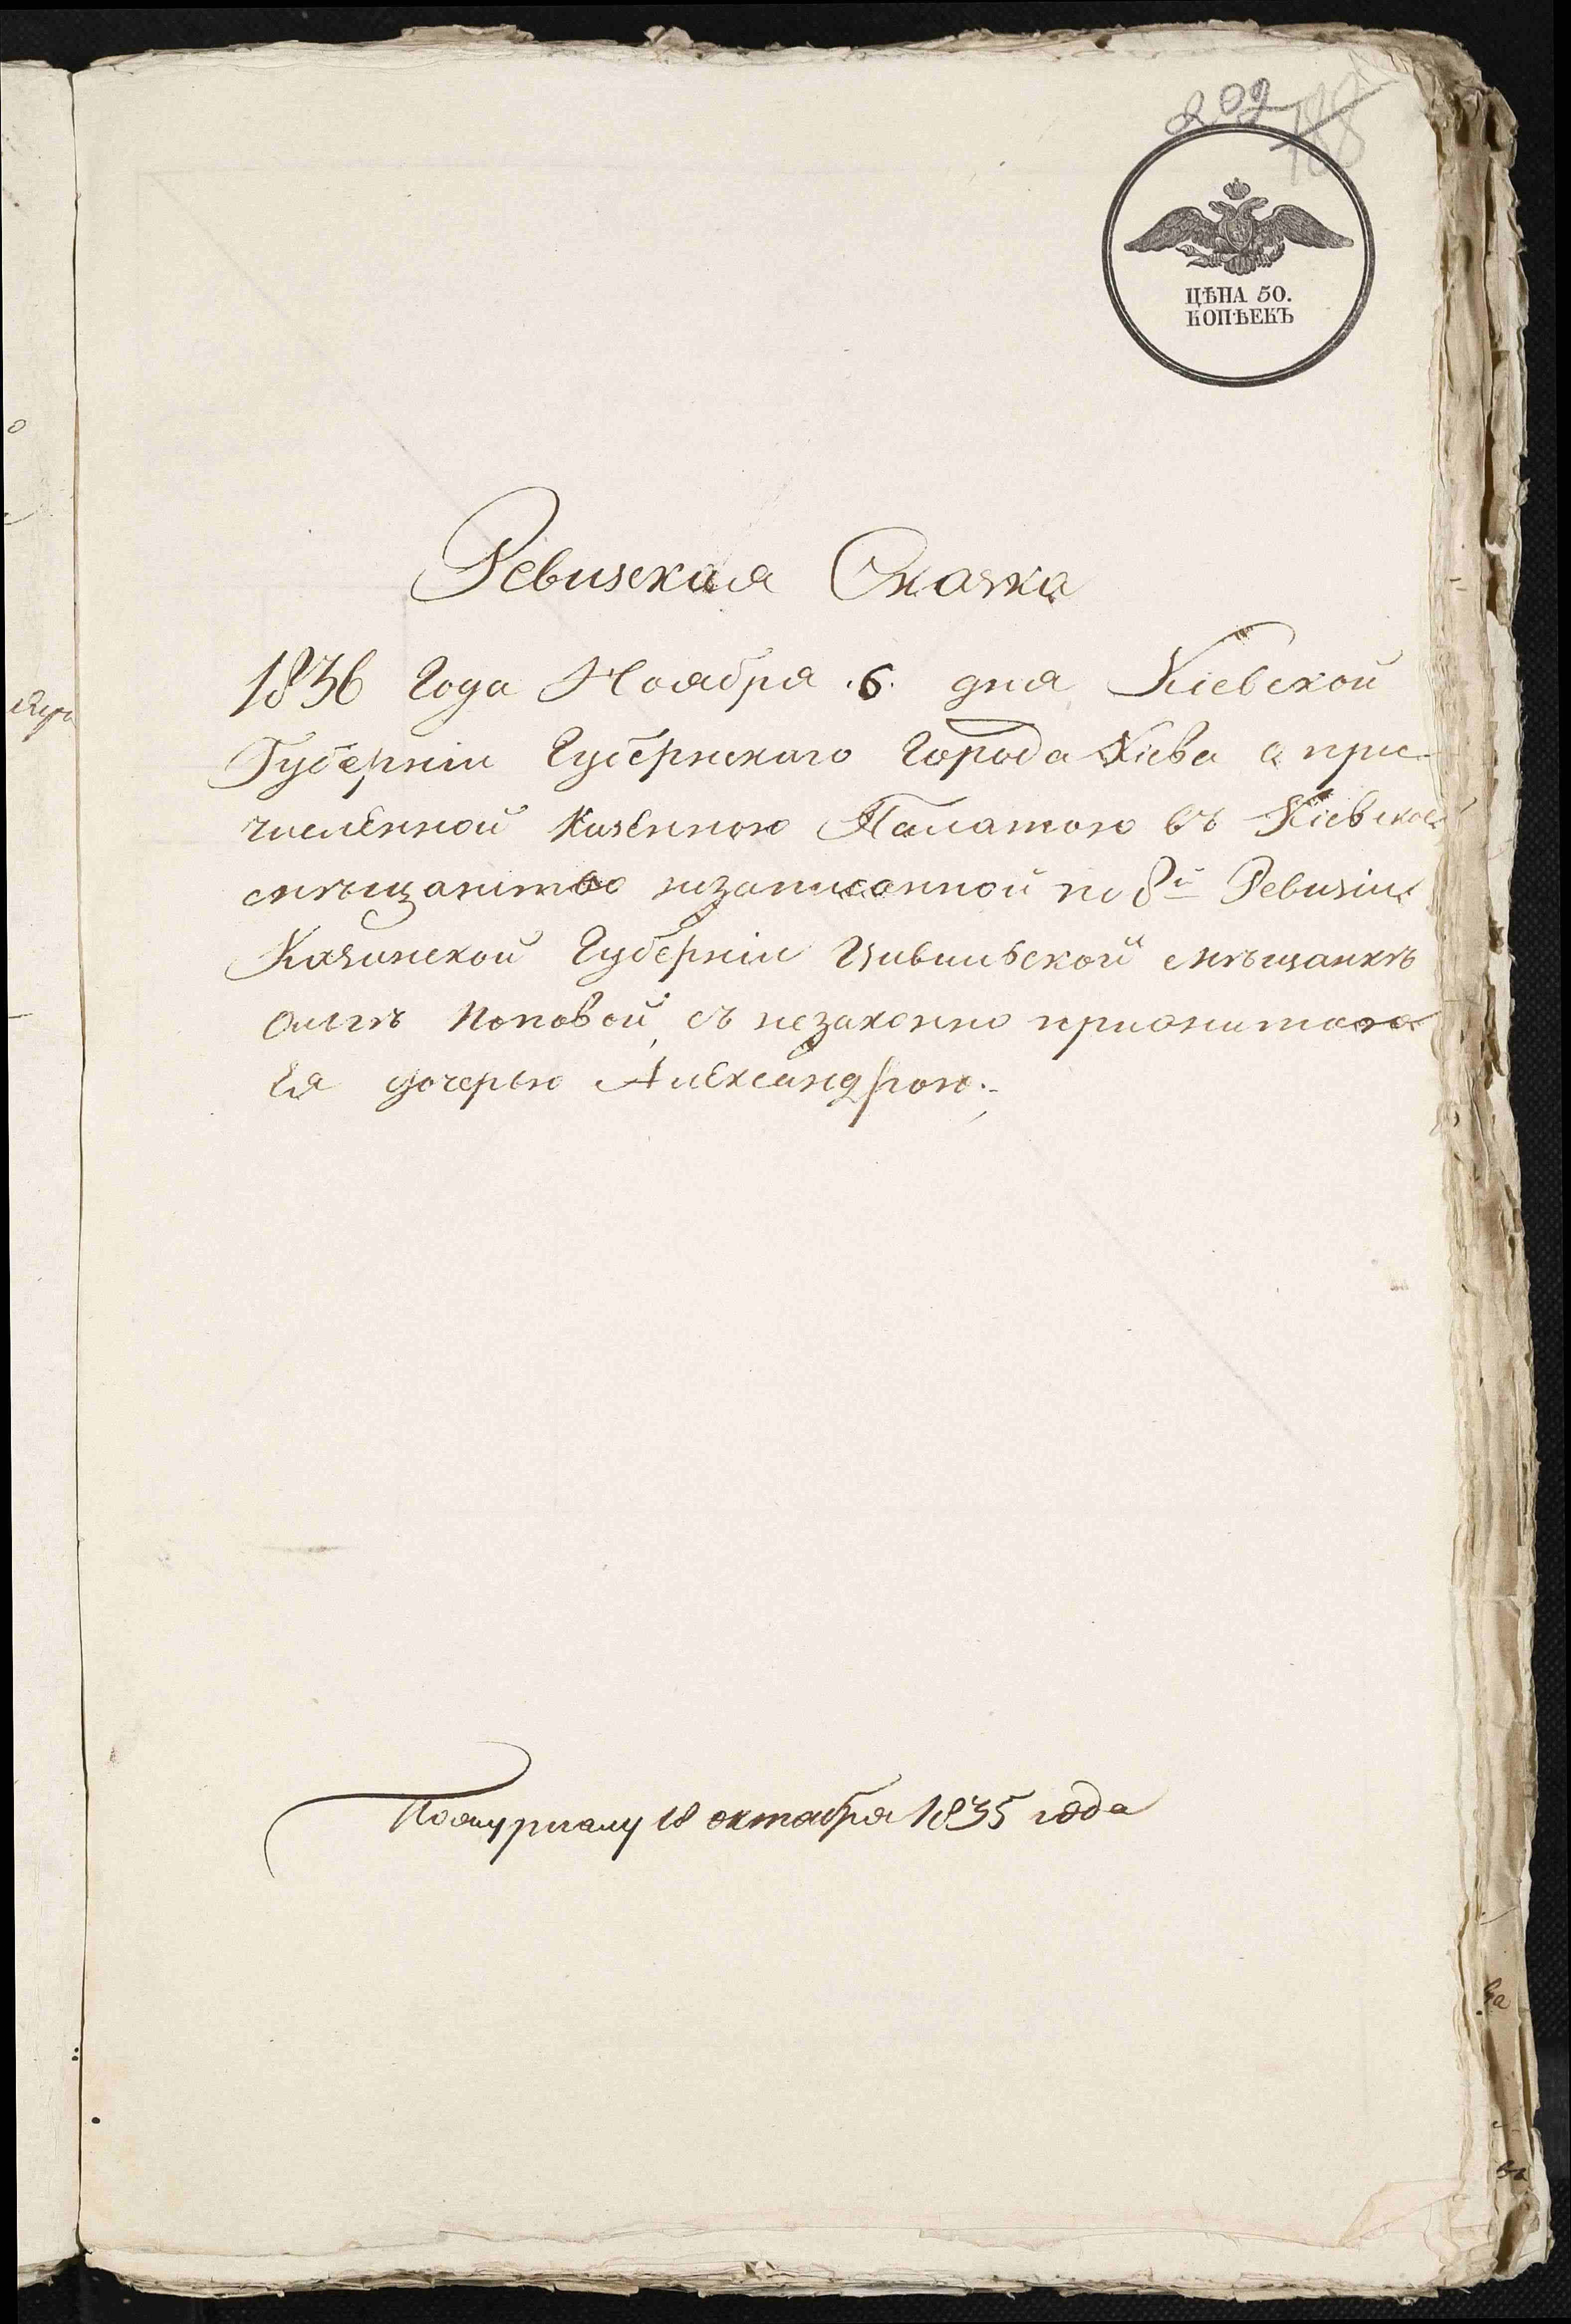 202
188
ЦѢНА 50.
КОПѢЕКЪ
Ревизская Сказка
1836 Года Ноября .6. дня Кіевской
Губерніи Губернскаго Города Кіева о при-
численной Казенною Палатою въ Кіевское
мѣщанство незаписанной по 8й Ревизіи
Казанской Губерніи Цивильской мѣщанкѣ
Олгѣ Поповой, съ незаконно прижитою
Ея дочерью Александрою.
По журналу 18 октября 1835 года